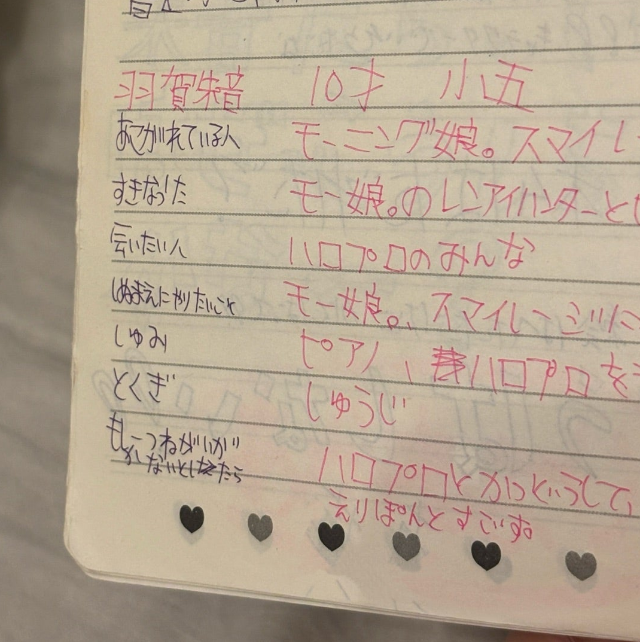 羽賀朱音 10才 小五
あこがれている人 モーニング娘。スマイレ
すきなうた モー娘。のレンアイハンターと
会いたい人 ハロプロのみんな
しぬまえにやりたいこと モー娘。、スマイレージに
しゅみ ピアノ、ハロプロを
とくぎ しゅうじ
もし一つねがいが
かないとしたら ハロプロとかつどうして、
えりぽんとすごす